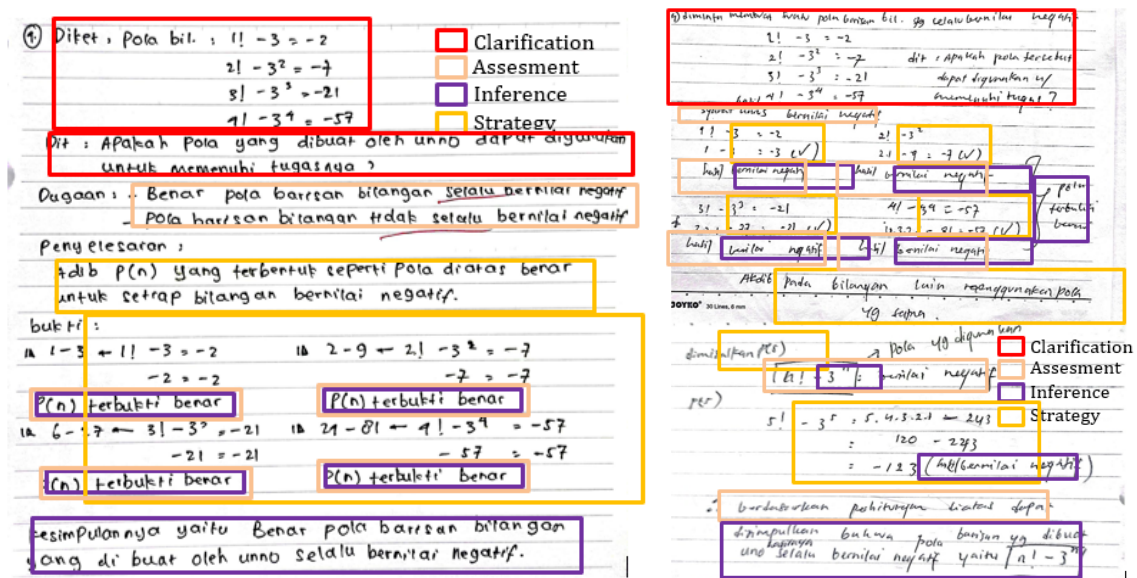 9. Diket, pola bil. : 1! - 3 = -2
2! - 3² = -7
3! - 3³ = -21
4! - 3⁴ = -57
Clarification
Assesment
Inference
Strategy
Dit : Apakah pola yang dibuat oleh unno dapat digunakan
untuk memenuhi tugasnya ?
Dugaan : - Benar pola barisan bilangan selalu bernilai negatif
- Pola barisan bilangan tidak selalu bernilai negatif
Penyelesaian :
Adib P(n) yang terbentuk seperti pola diatas benar
untuk setiap bilangan bernilai negatif.
bukti :
1-3 ← 1! - 3 = -2
-2 = -2
P(n) terbukti benar
2-9 ← 2! - 3² = -7
-7 = -7
P(n) terbukti benar
6-27 ← 3! - 3³ = -21
-21 = -21
P(n) terbukti benar
24-81 ← 4! - 3⁴ = -57
-57 = -57
P(n) terbukti benar
kesimpulannya yaitu Benar pola barisan bilangan
yang di buat oleh unno selalu bernilai negatif.
9) diminta membuat suatu pola barisan bil. yg selalu bernilai negati-
1! - 3 = -2
2! - 3² = -7 dit : Apakah pola tersebut
3! - 3³ = -21 dapat digunakan u/
4! - 3⁴ = -57 memenuhi tugas ?
bernilai negatif
1! - 3 = -2
1 - 3 = -3 (✓)
hasil bernilai negatif
2! - 3²
2.1 - 9 = -7 (✓)
hasil bernilai negati-
3! - 3³ = -21
- 27 = -21 (✓)
hasil bernilai negatif
4! - 3⁴ = -57
- 81 = -57 (✓)
bernilai negatif
pola
terbukti
benar
Akdib pada bilangan lain menggunakan pola
yg sama.
JOYKO® 30 Lines, 6 mm
dimisalkan → pola yg digunakan
n! - 3ⁿ = bernilai negatif
Clarification
Assesment
Inference
Strategy
5! - 3⁵ = 5.4.3.2.1 - 243
= 120 - 243
= -123 (hasil bernilai negatif)
∴ berdasarkan perhitungan diatas dapat
disimpulkan bahwa pola barisan yg dibuat
uno selalu bernilai negatif yaitu n! - 3ⁿ